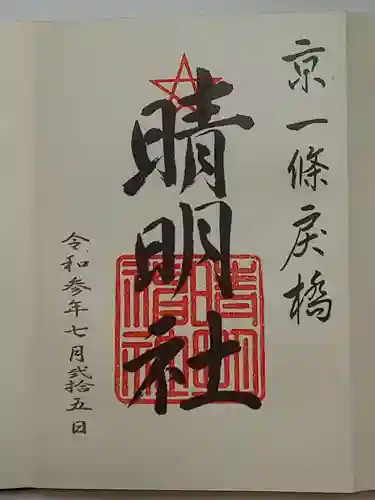 京一條戻橋
晴明社
令和参年七月弐拾五日